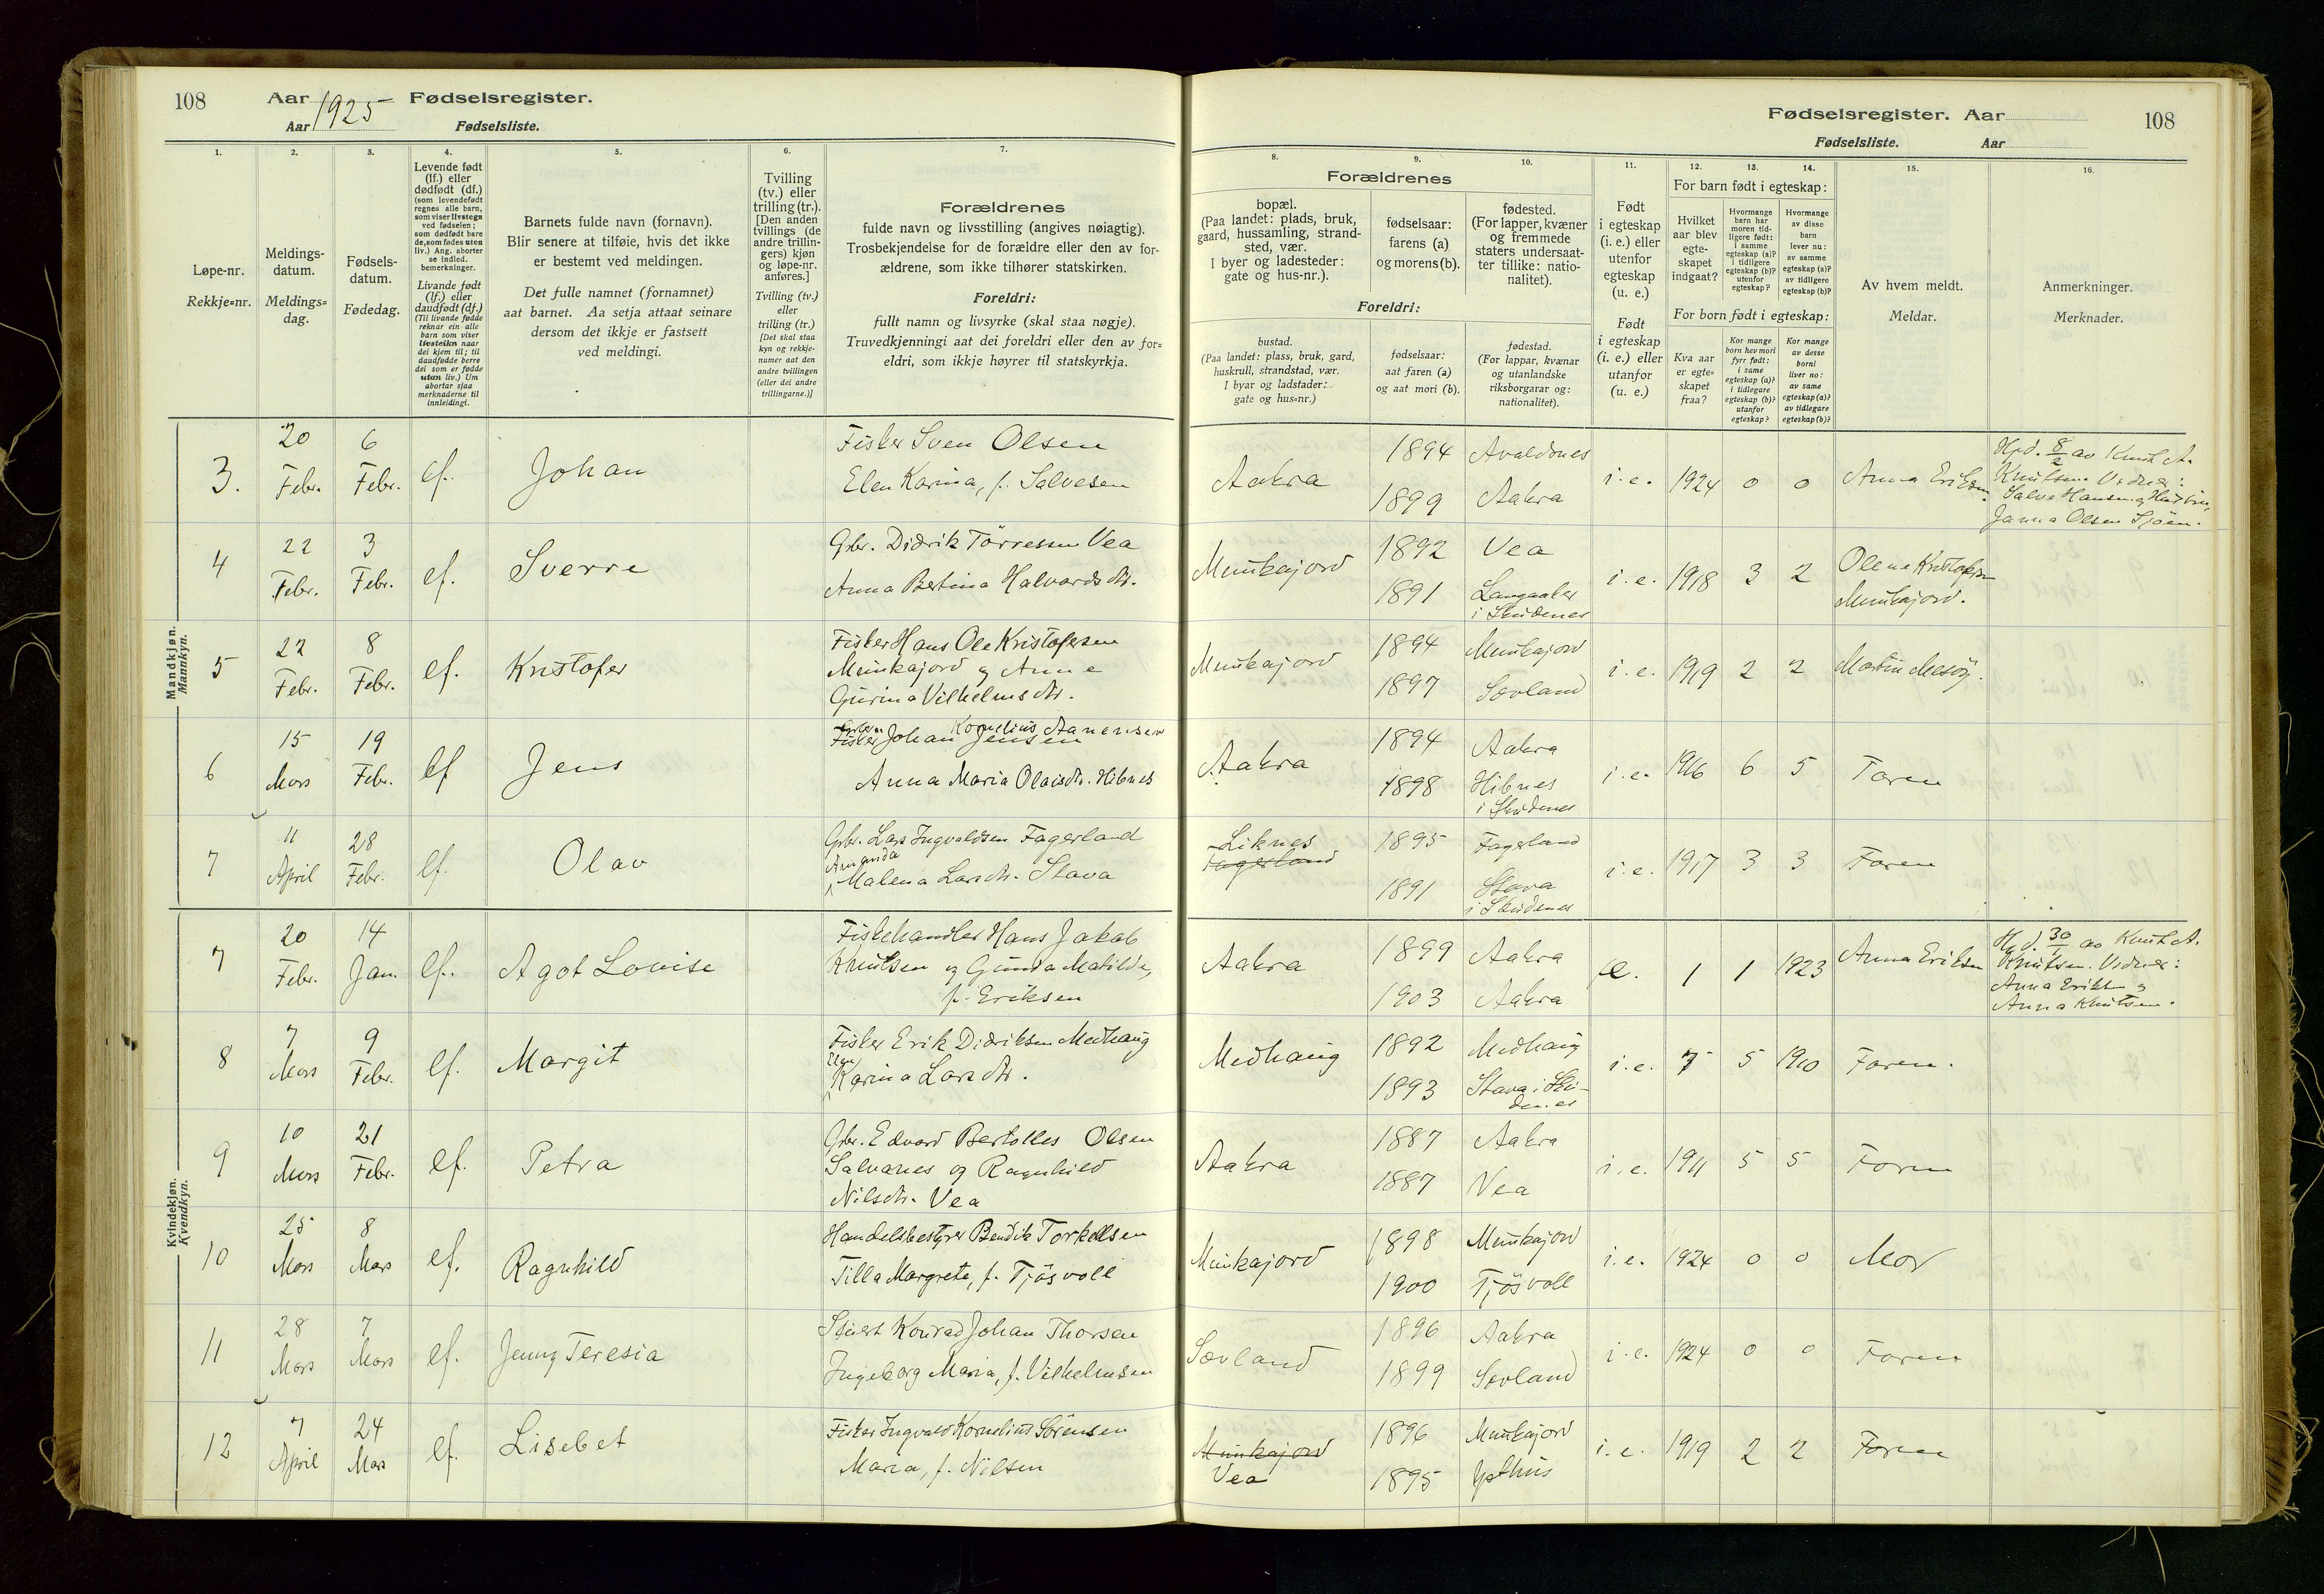 108 Aar 1925 Fødselsregister.
Aar Fødselsliste.
Fødselsregister. Aar 108
Fødselsliste. Aar
1. 2. 3. 4. 5. 6. 7.
Løpe-nr.
Rekkje=nr.
Meldings-
datum.
Meldings=
dag.
Fødsels-
datum.
Fødedag.
Levende født
(lf.) eller
dødfødt (df.)
(som levendefødt
regnes alle barn,
som viser livstegn
ved fødselen;
som dødfødt bare
de, som fødes uten
liv.) Ang. aborter
se indled.
bemerkninger.
Livande født
(lf.) eller
daudfødt (df.)
(Til livande fødde
reknar ein alle
barn som viser
livsteikn naar
dei kjem til; til
daudfødde berre
dei som er fødde
utan liv.) Um
abortar sjaa
merknaderne til
innleidingi.
Barnets fulde navn (fornavn).
Blir senere at tilføie, hvis det ikke
er bestemt ved meldingen.
Det fulle namnet (fornamnet)
aat barnet. Aa setja attaat seinare
dersom det ikkje er fastsett
ved meldingi.
Tvilling
(tv.) eller
trilling (tr.).
[Den anden
tvillings (de
andre trillin-
gers) kjøn
og løpe-nr.
anføres.]
Tvilling (tv.)
eller
trilling (tr.)
[Det skal staa
kyn og rekkje-
numer aat den
andre tvillingen
(eller dei andre
trillingarne.)]
Forældrenes
fulde navn og livsstilling (angives nøiagtig).
Trosbekjendelse for de forældre eller den av for-
ældrene, som ikke tilhører statskirken.
Foreldri:
fullt namn og livsyrke (skal staa nøgje).
Truvedkjenningi aat dei foreldri eller den av for=
eldri, som ikkje høyrer til statskyrkja.
8. 9. 10. 11. 12. 13. 14. 15. 16.
Forældrenes
bopæl.
(Paa landet: plads, bruk,
gaard, hussamling, strand-
sted, vær.
I byer og ladesteder:
gate og hus-nr.).
fødselsaar:
farens (a)
og morens (b).
fødested.
(For lapper, kvæner
og fremmede
staters undersaat-
ter tillike: natio-
nalitet).
Foreldri:
bustad.
(Paa landet: plass, bruk, gard,
huskrull, strandstad, vær.
I byar og ladstader:
gate og hus=nr.)
fødselsaar:
aat faren (a)
og aat mori (b).
fødestad.
(For lappar, kvænar
og utanlandske
riksborgarar og:
nationalitet).
Født
i egteskap
(i. e.) eller
utenfor
egteskap
(u. e.)
Født
i egteskap
(i. e.) eller
utanfor
(u. e.)
For barn født i egteskap:
Hvilket
aar blev
egte-
skapet
indgaat?
Hvormange
barn har
moren tid-
ligere født:
i samme
egteskap (a)?
i tidligere
egteskap (b)?
utenfor
egteskap?
Hvormange
av disse
barn
lever nu:
av samme
egteskap (a)?
av tidligere
egteskap (b)?
For born født i egteskap:
Kva aar
er egte=
skapet
fraa?
Kor mange
born hev mori
fyrr født:
i same
egteskap (a)?
i tidlegare
egteskap (b)?
utanfor
egteskap?
Kor mange
av desse
borni
liver no:
av same
egteskap (a)?
av tidlegare
egteskap (b)?
Av hvem meldt.
Meldar.
Anmerkninger.
Merknader.
Mandkjøn.
Mannkyn.
3. 20 Febr. 6 Febr. lf. Johan
Fisker Sven Olsen
Elen Karina, f. Salvesen
Aakra 1894 Avaldsnes
1899 Aakra
i. e. 1924 0 0 Anna Eriksen.
Hjd. 8/2 av Knut A.
Knutsen. Vidner:
Salve Hansen og
Janna Olsen Sjöen.
4 22 Febr. 3 Febr. lf. Sverre
Gbr. Didrik Tørressen Vea
Anna Bertina Halvardsdtr.
Munkajord 1892 Vea
1891 Langaaker
i Skudenes
i. e. 1918 3 2 Olena Kristofersen
Munkajord.
5 22 Febr. 8 Febr. lf. Kristofer
Fisker Hans Ole Kristofersen
Munkajord og Anne
Gurina Vilhelmsdtr.
Munkajord 1894 Munkajord
1897 Sævland
i. e. 1919 2 2 Martin Mesøy.
6 15 Mars 19 Febr. lf Jens
Fisker Johan Jensen Kornelius Aanensen
Anna Maria Olaisdtr. Hibnes
Aakra 1894 Aakra
1898 Hibnes
i Skudenes
i. e. 1916 6 5 Faren
7 11 April 28 Febr. lf. Olav
Gbr. Lars Ingvaldsen Fagerland
Amanda
Malena Larsdtr. Stava
Liknes
Fagerland
1895 Fagerland
1891 Stava
i Skudenes
i. e. 1917 3 3 Faren
Kvindekjøn.
Kvendkyn.
7 20 Febr. 14 Jan. lf. Agot Lovise
Fiskehandler Hans Jakob
Knutsen og Gunda Matilde,
f. Eriksen
Aakra 1899 Aakra
1903 Aakra
e. 1 1 1923 Anna Eriksen
Hjd. 30/1 av Knut A.
Knutsen. Vidner:
Anna Eriksen og
Anna Knutsen.
8 7 Mars 9 Febr. lf. Margit
Fisker Erik Didriksen Medhaug
Elen
Karina Larsdtr.
Medhaug 1892 Medhaug
1893 Stava i Sku-
denes
i. e. 7 5 1910 Faren.
9 10 Mars 21 Febr. lf. Petra
Gbr. Edvard Bertolles Olsen
Salvanes og Ragnhild
Nilsdtr. Vea
Aakra 1887 Aakra
1887 Vea
i. e. 1911 5 5 Faren
10 25 Mars 8 Mars lf. Ragnhild
Handelsbestyrer Bendik Torkellsen
Tilla Margrete, f. Tjösvoll
Munkajord 1898 Munkajord
1900 Tjösvoll
i. e. 1924 0 0 Mor
11 28 Mars 7 Mars lf. Jenny Teresia
Stuert Konrad Johan Thorsen
Ingeborg Maria, f. Vilhelmsen
Sævland 1896 Aakra
1899 Sævland
i. e. 1924 0 0 Faren
12 7 April 24 Mars lf. Lisebet
Fisker Ingvald Kornelius Sörensen
Maria, f. Nilsen
Munkajord
Vea
1896 Munkajord
1895 Ysthus
i. e. 1919 2 2 Faren